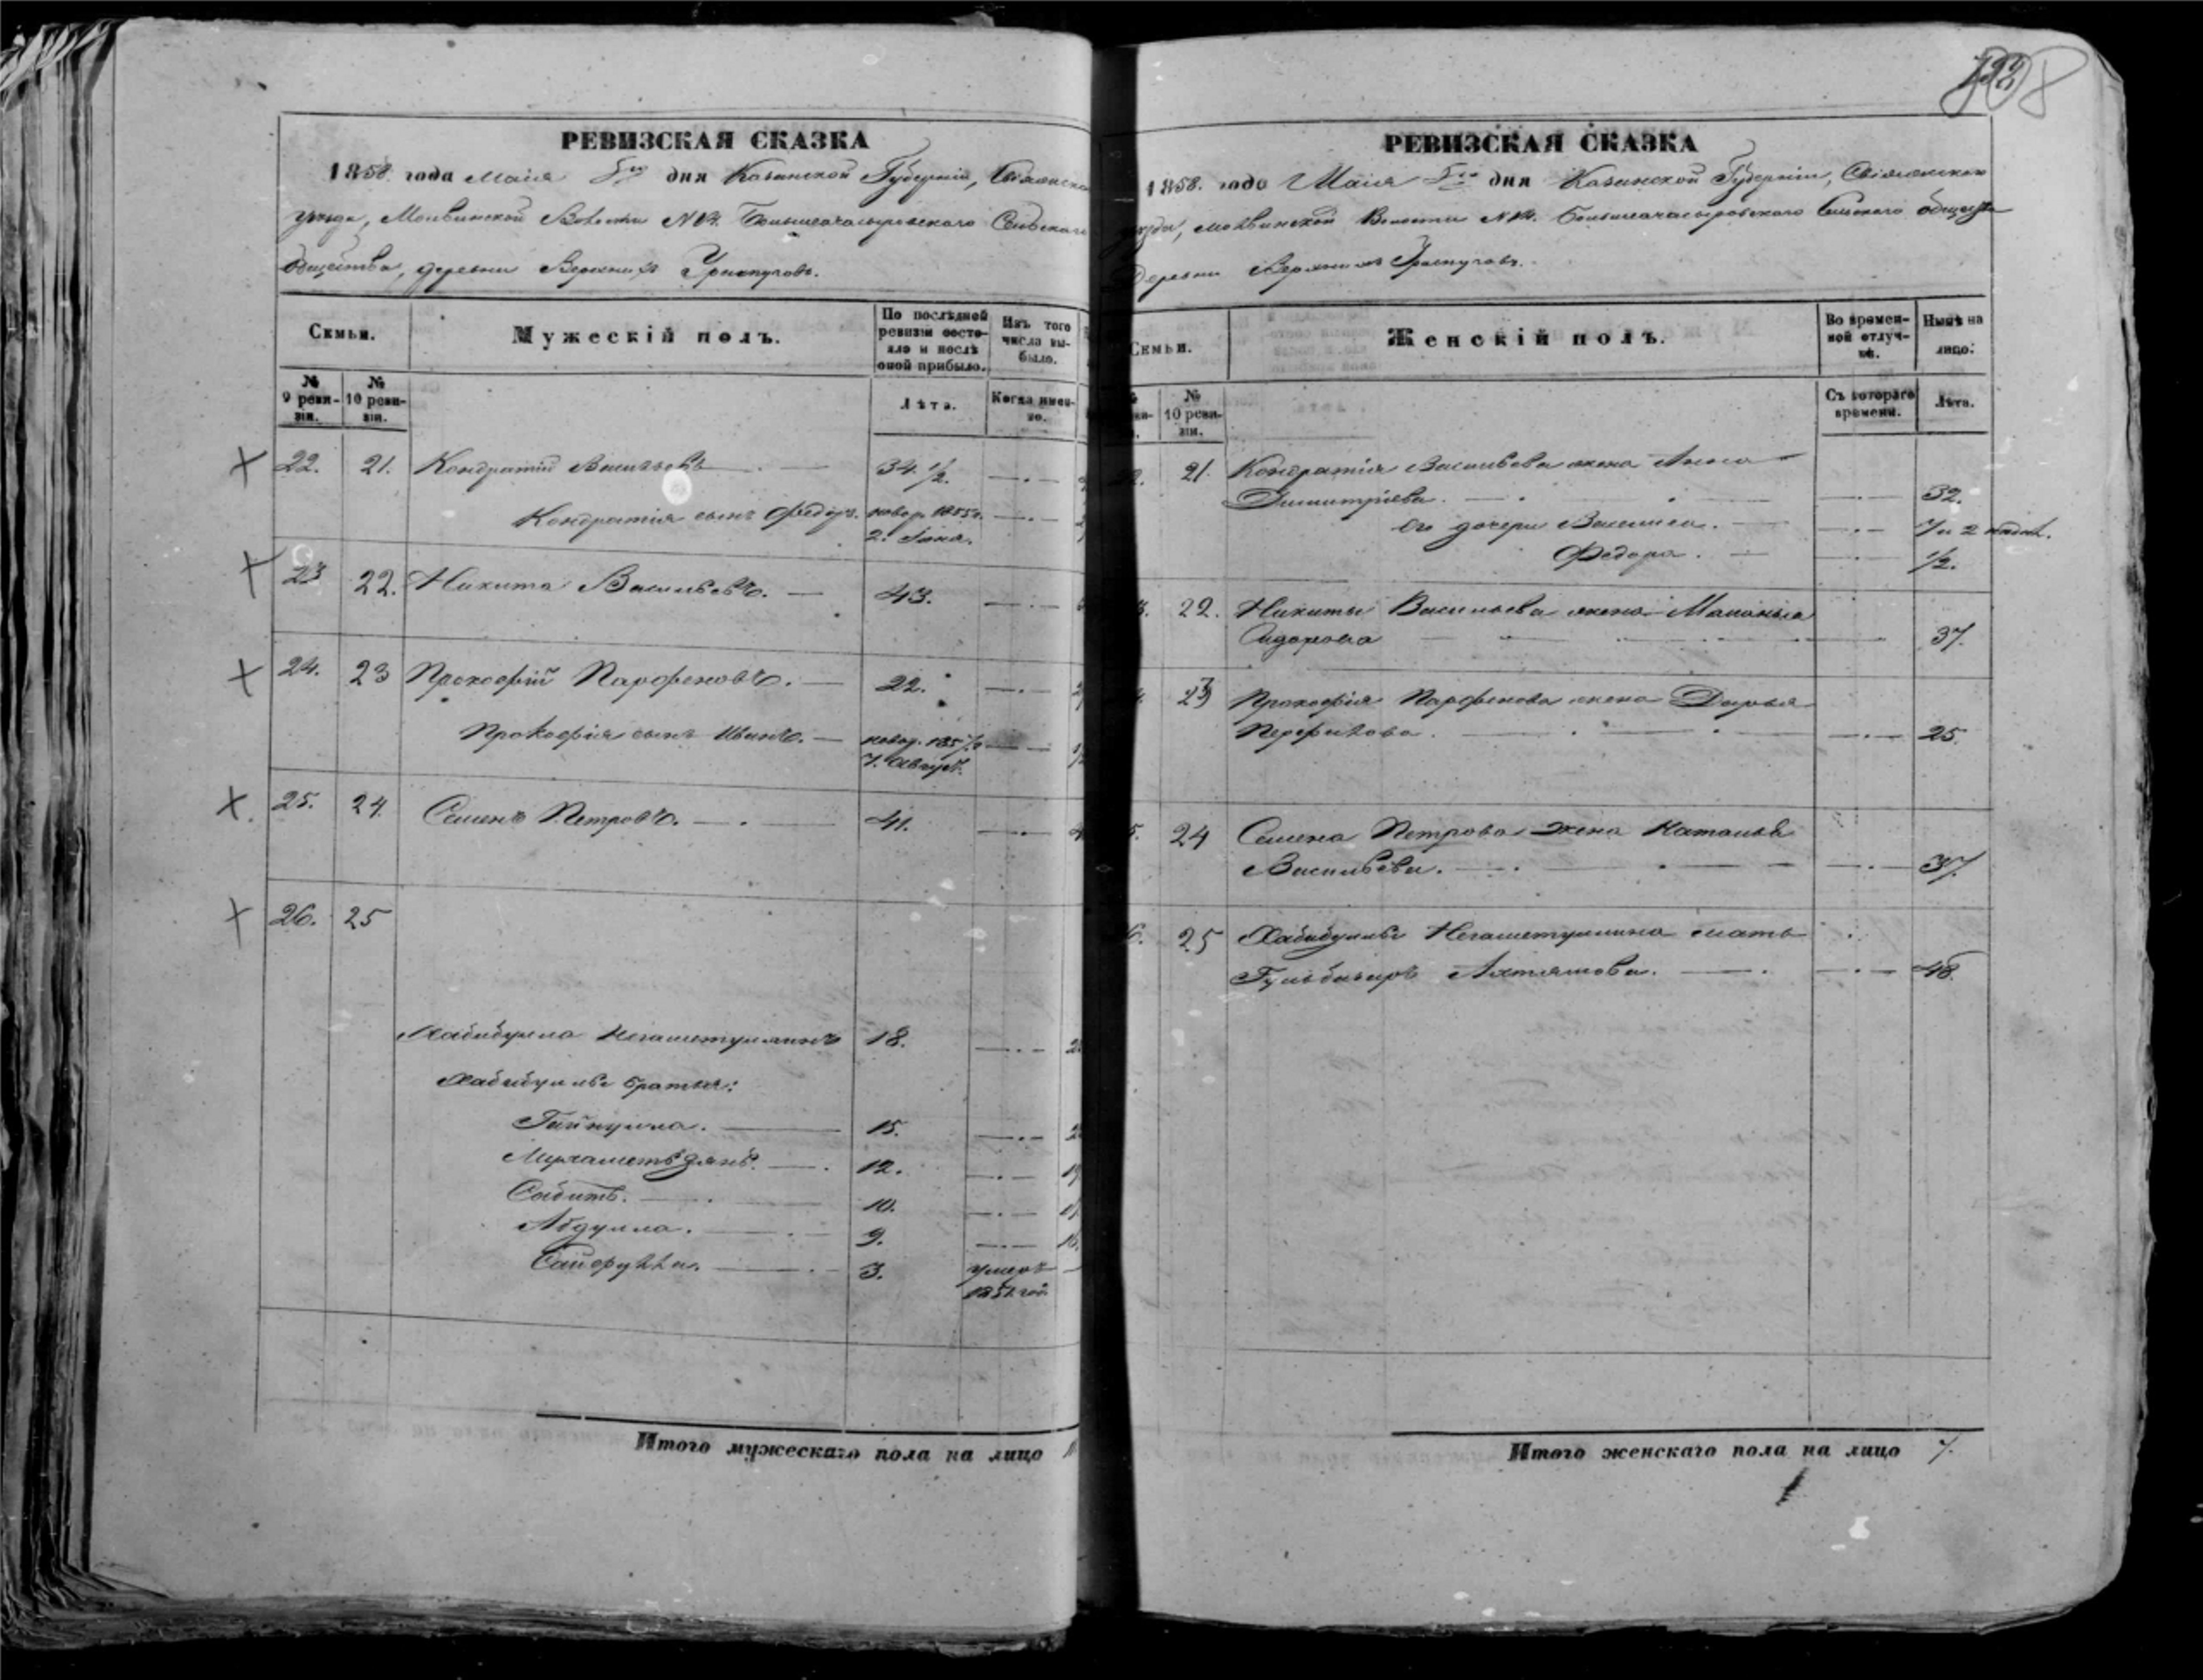 РЕВИЗСКАЯ СКАЗКА
1858. года Маія дня Казанской Губерніи, Свіяжскаго
уѣзда, Молвинской Волости № Большеачасыровскаго Сельскаго
общества, деревни Верхнихъ
Семьи.
Мужескій полъ.
По послѣдней ревизіи состояло и послѣ оной прибыло.
Изъ того числа выбыло.
№ 9 ревизіи.
№ 10 ревизіи.
Лѣта.
Когда именно.
22. 21. Кондратій Васильевъ 34 1/2.
Кондратія сынъ Федоръ. новор. 1855 г.
23 22. Никита Васильевъ. 43.
24. 23 Прокофій Парфеновъ. 22.
Прокофія сынъ Иванъ. новор. 185
7. Август.
25. 24. Семенъ Петровъ. 41.
26. 25
Хабибулла Негаметуллинъ 18.
Хабибуллы братья:
Гайнулла. 15.
Мухаметъ Зянъ. 12.
Сабитъ. 10.
Абдулла. 9.
3. умеръ
Итого мужескаго пола на лицо
РЕВИЗСКАЯ СКАЗКА
1858. года Маія дня Казанской Губерніи, Свіяжскаго
уѣзда, Молвинской Волости № Большеачасыровскаго Сельскаго общества
деревни Верхнихъ
Семьи.
Женскій полъ.
Во временной отлучкѣ.
Нынѣ на лицо.
№ 10 ревизіи.
Съ котораго времени.
Лѣта.
21. Кондратія Васильева жена Анна
Димитріева. 32.
Его дочери Василиса. 7 и 2 недѣл.
Федора. 1/2.
22. Никиты Васильева жена Маланья
Сидорова 37.
23 Прокофія Парфенова жена Дарья
25.
24 Семена Петрова жена Наталья
Васильева. 37.
25 Хабибуллы Негаметуллина мать
48.
Итого женскаго пола на лицо 7.